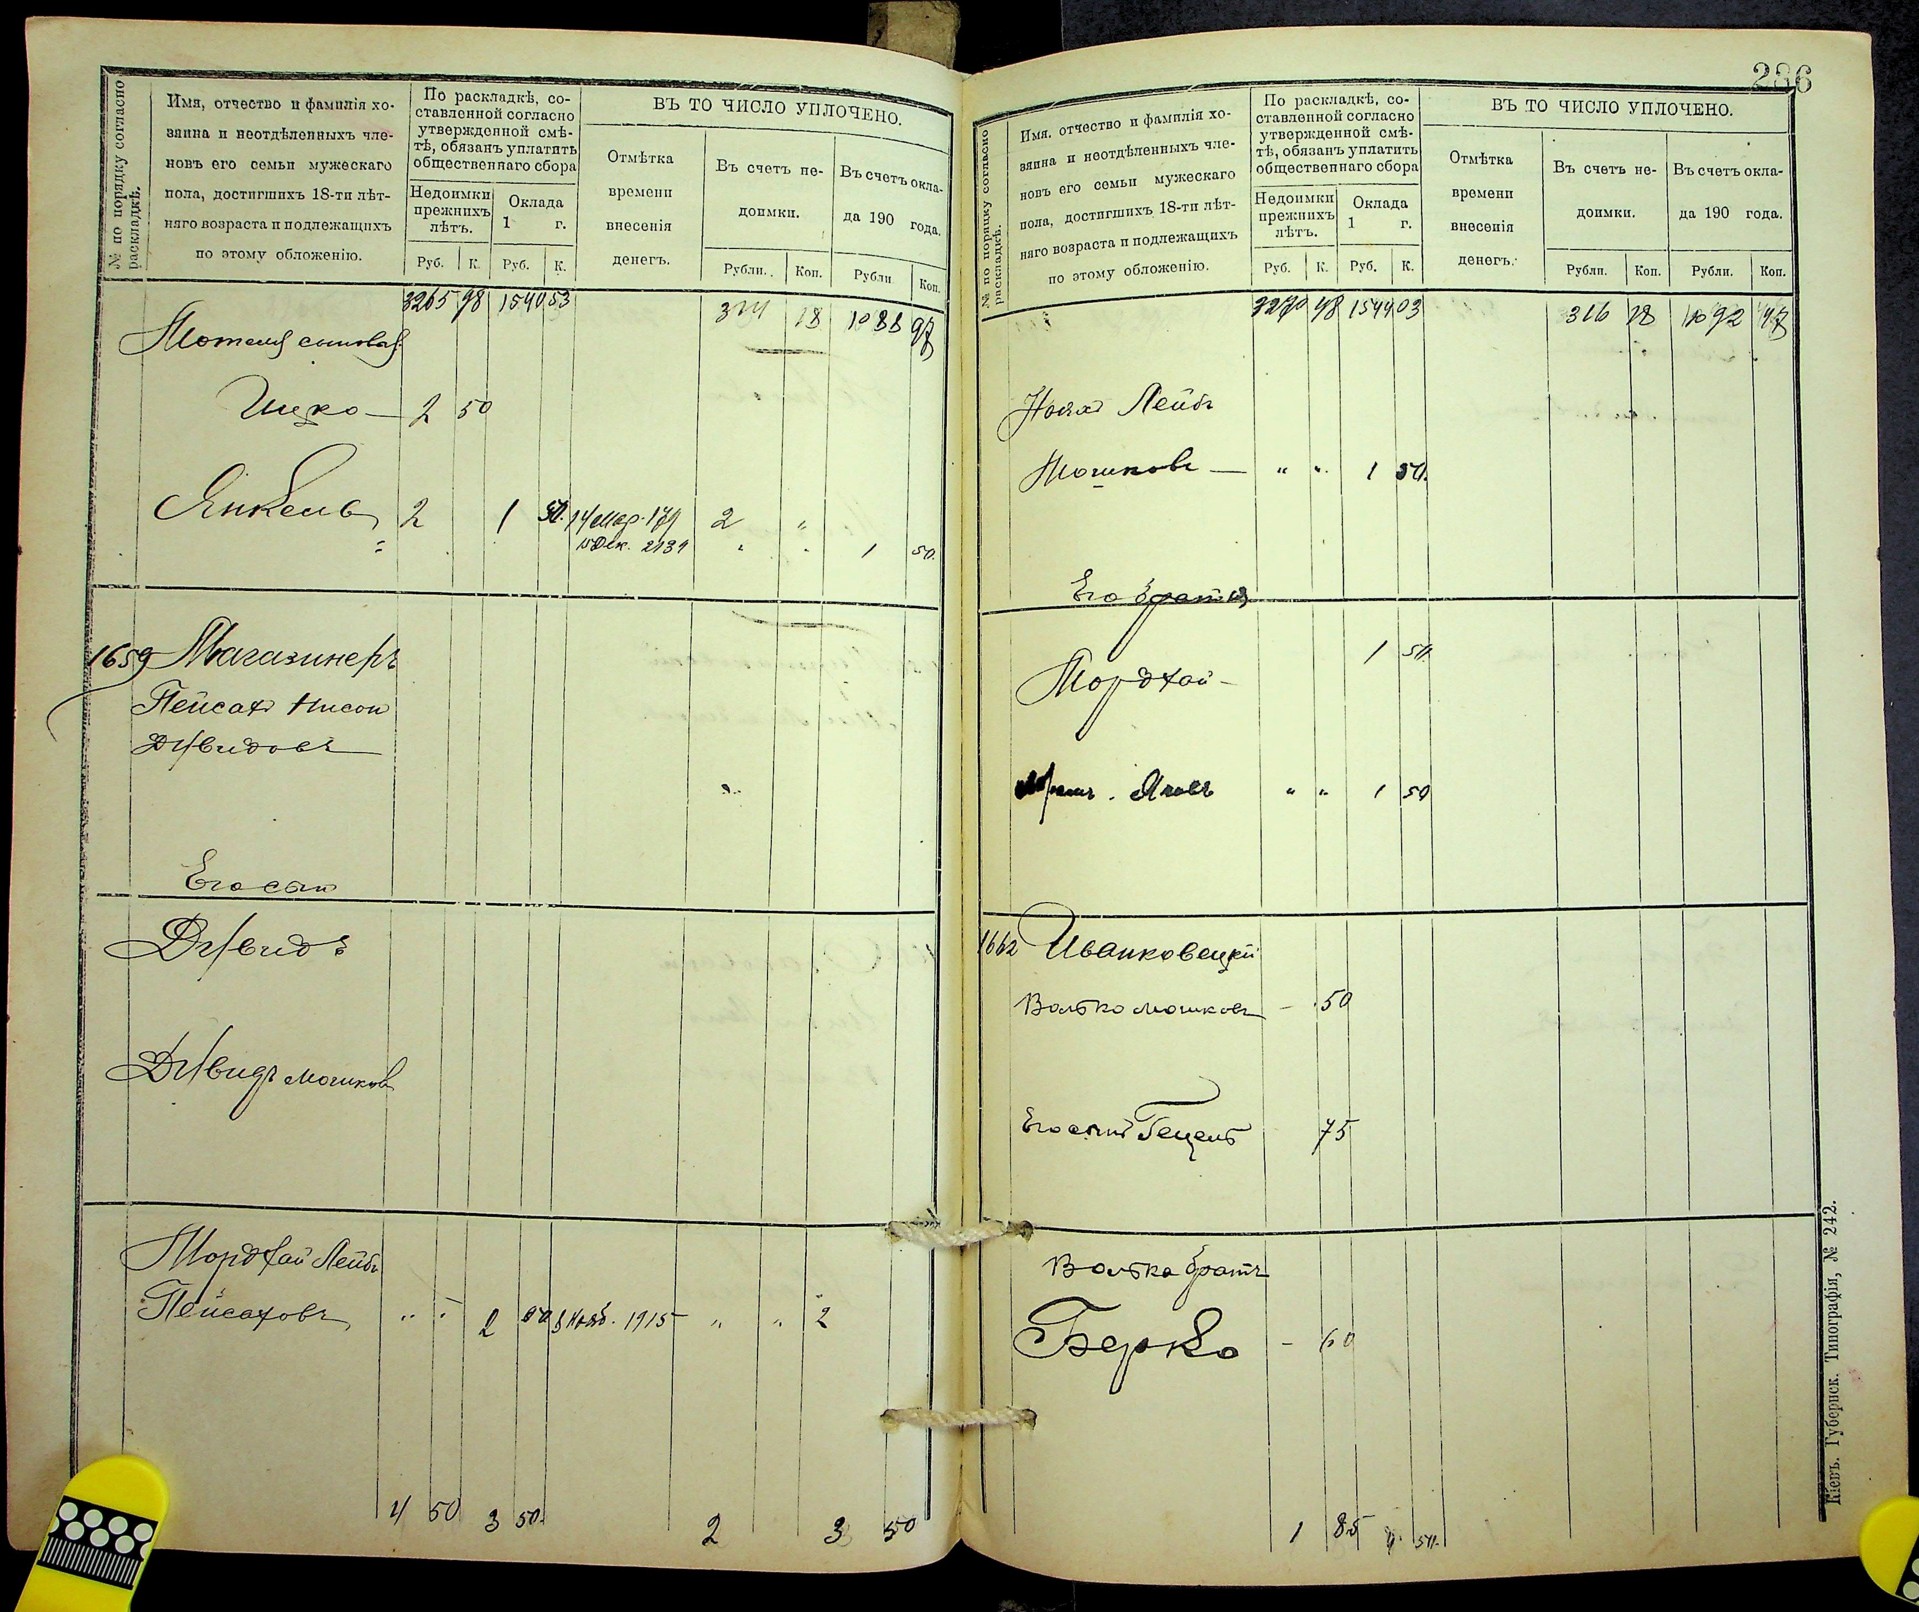 № по порядку согласно раскладкѣ.
Имя, отчество и фамилія хо-
зяина и неотдѣленныхъ чле-
новъ его семьи мужескаго
пола, достигшихъ 18-ти лѣт-
няго возраста и подлежащихъ
по этому обложенію.
По раскладкѣ, со-
ставленной согласно
утвержденной смѣ-
тѣ, обязанъ уплатить
общественнаго сбора
Недоимки
прежнихъ
лѣтъ.
Оклада
1 г.
Руб. К. Руб. К.
ВЪ ТО ЧИСЛО УПЛОЧЕНО.
Отмѣтка
времени
внесенія
денегъ.
Въ счетъ не-
доимки.
Въ счетъ окла-
да 190 года.
Рубли. Коп. Рубли Коп.
3265 98 1540 53 18 1088 97
Мотеля сыновья
Ицко — 2 50
Янкель 2 1 50 14 Мар. 179 2 "
15 Дек. 2139 " " 1 50
1659 Магазинеръ
Пейсахъ Нисон
Дувидовъ
Его сын
Дувидъ
Дувидъ Мошков
Мордхай Лейбъ
Пейсаховъ " " 2 1915 " " 2
4 50 3 50 2 3 50
236
№ по порядку согласно раскладкѣ.
Имя, отчество и фамилія хо-
зяина и неотдѣленныхъ чле-
новъ его семьи мужескаго
пола, достигшихъ 18-ти лѣт-
няго возраста и подлежащихъ
по этому обложенію.
По раскладкѣ, со-
ставленной согласно
утвержденной смѣ-
тѣ, обязанъ уплатить
общественнаго сбора
Недоимки
прежнихъ
лѣтъ.
Оклада
1 г.
Руб. К. Руб. К.
ВЪ ТО ЧИСЛО УПЛОЧЕНО.
Отмѣтка
времени
внесенія
денегъ.
Въ счетъ не-
доимки.
Въ счетъ окла-
да 190 года.
Рубли. Коп. Рубли. Коп.
3270 48 1544 03 316 18 1092 47
Лейбъ
Мошковъ — " " 1 50
Его братья
Мордхай — 1 50
Яковъ " " 1 50
1662 Иванковецкій
Волько Мошковъ — 50
Его сынъ Гецель 75
Волька братъ
Берко — 60
1 85 4 50
Кіевъ. Губернск. Типографія, № 242.